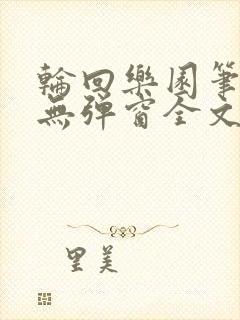 輪回樂園筆
無彈窗全文
里美